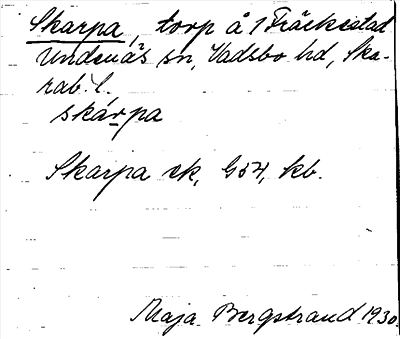 Skarpa, torp å 1 Fräckestad
Undenäs sn, Vadsbo hd, Ska-
rab. l.
skárpa
Skarpa ek, G54, kb.
Maja Bergstrand 1930.